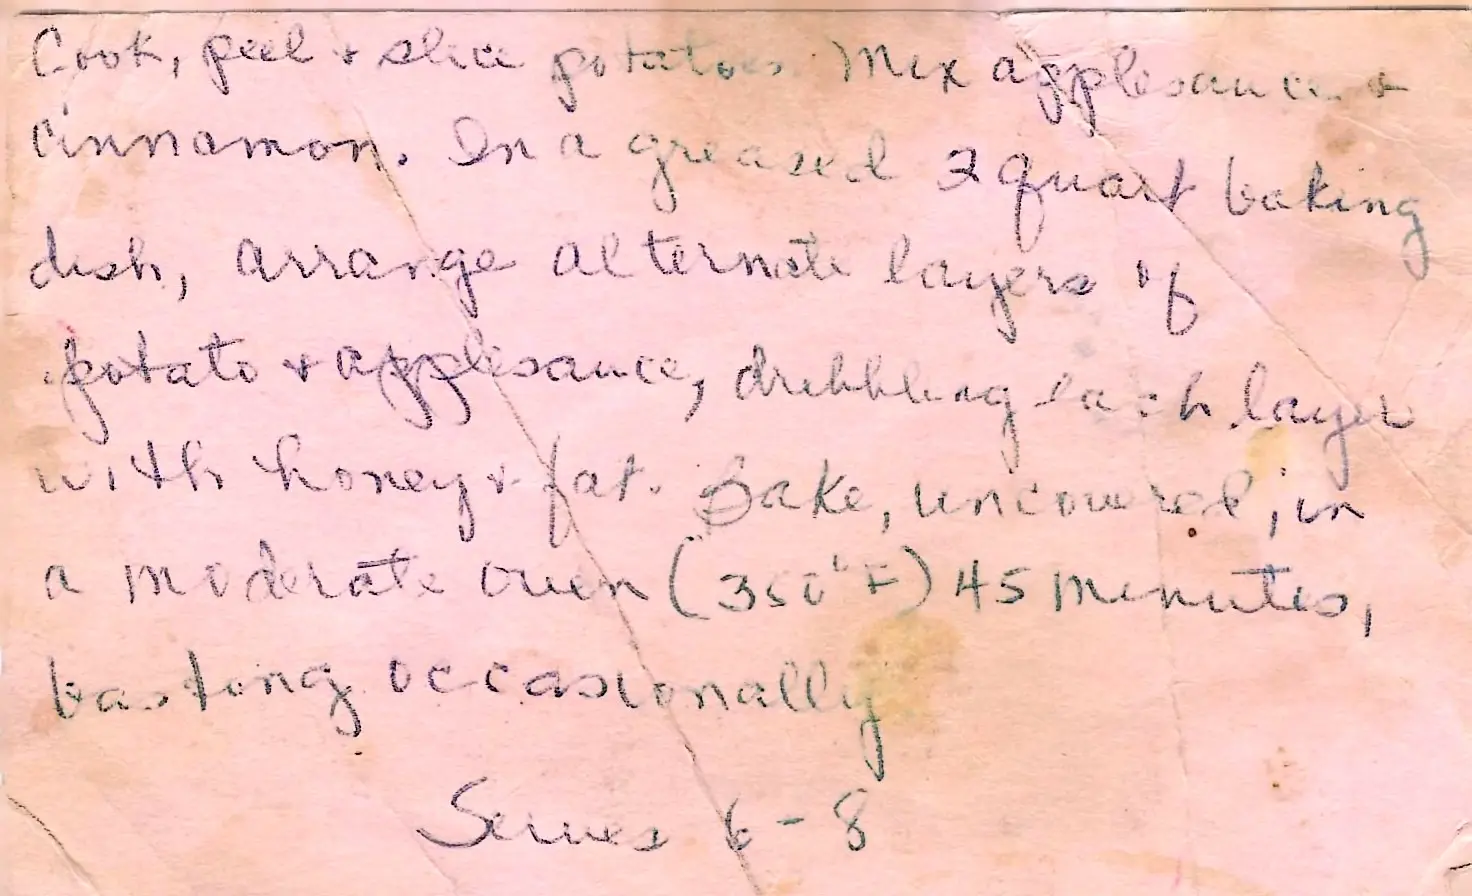 Cook, peel + slice potatoes. Mix applesauce +
cinnamon. In a greased 2 quart baking
dish, arrange alternate layers of
potato + applesauce, dribbling each layer
with honey + fat. Bake, uncovered, in
a moderate oven (350°F) 45 minutes,
basting occasionally
Serves 6-8